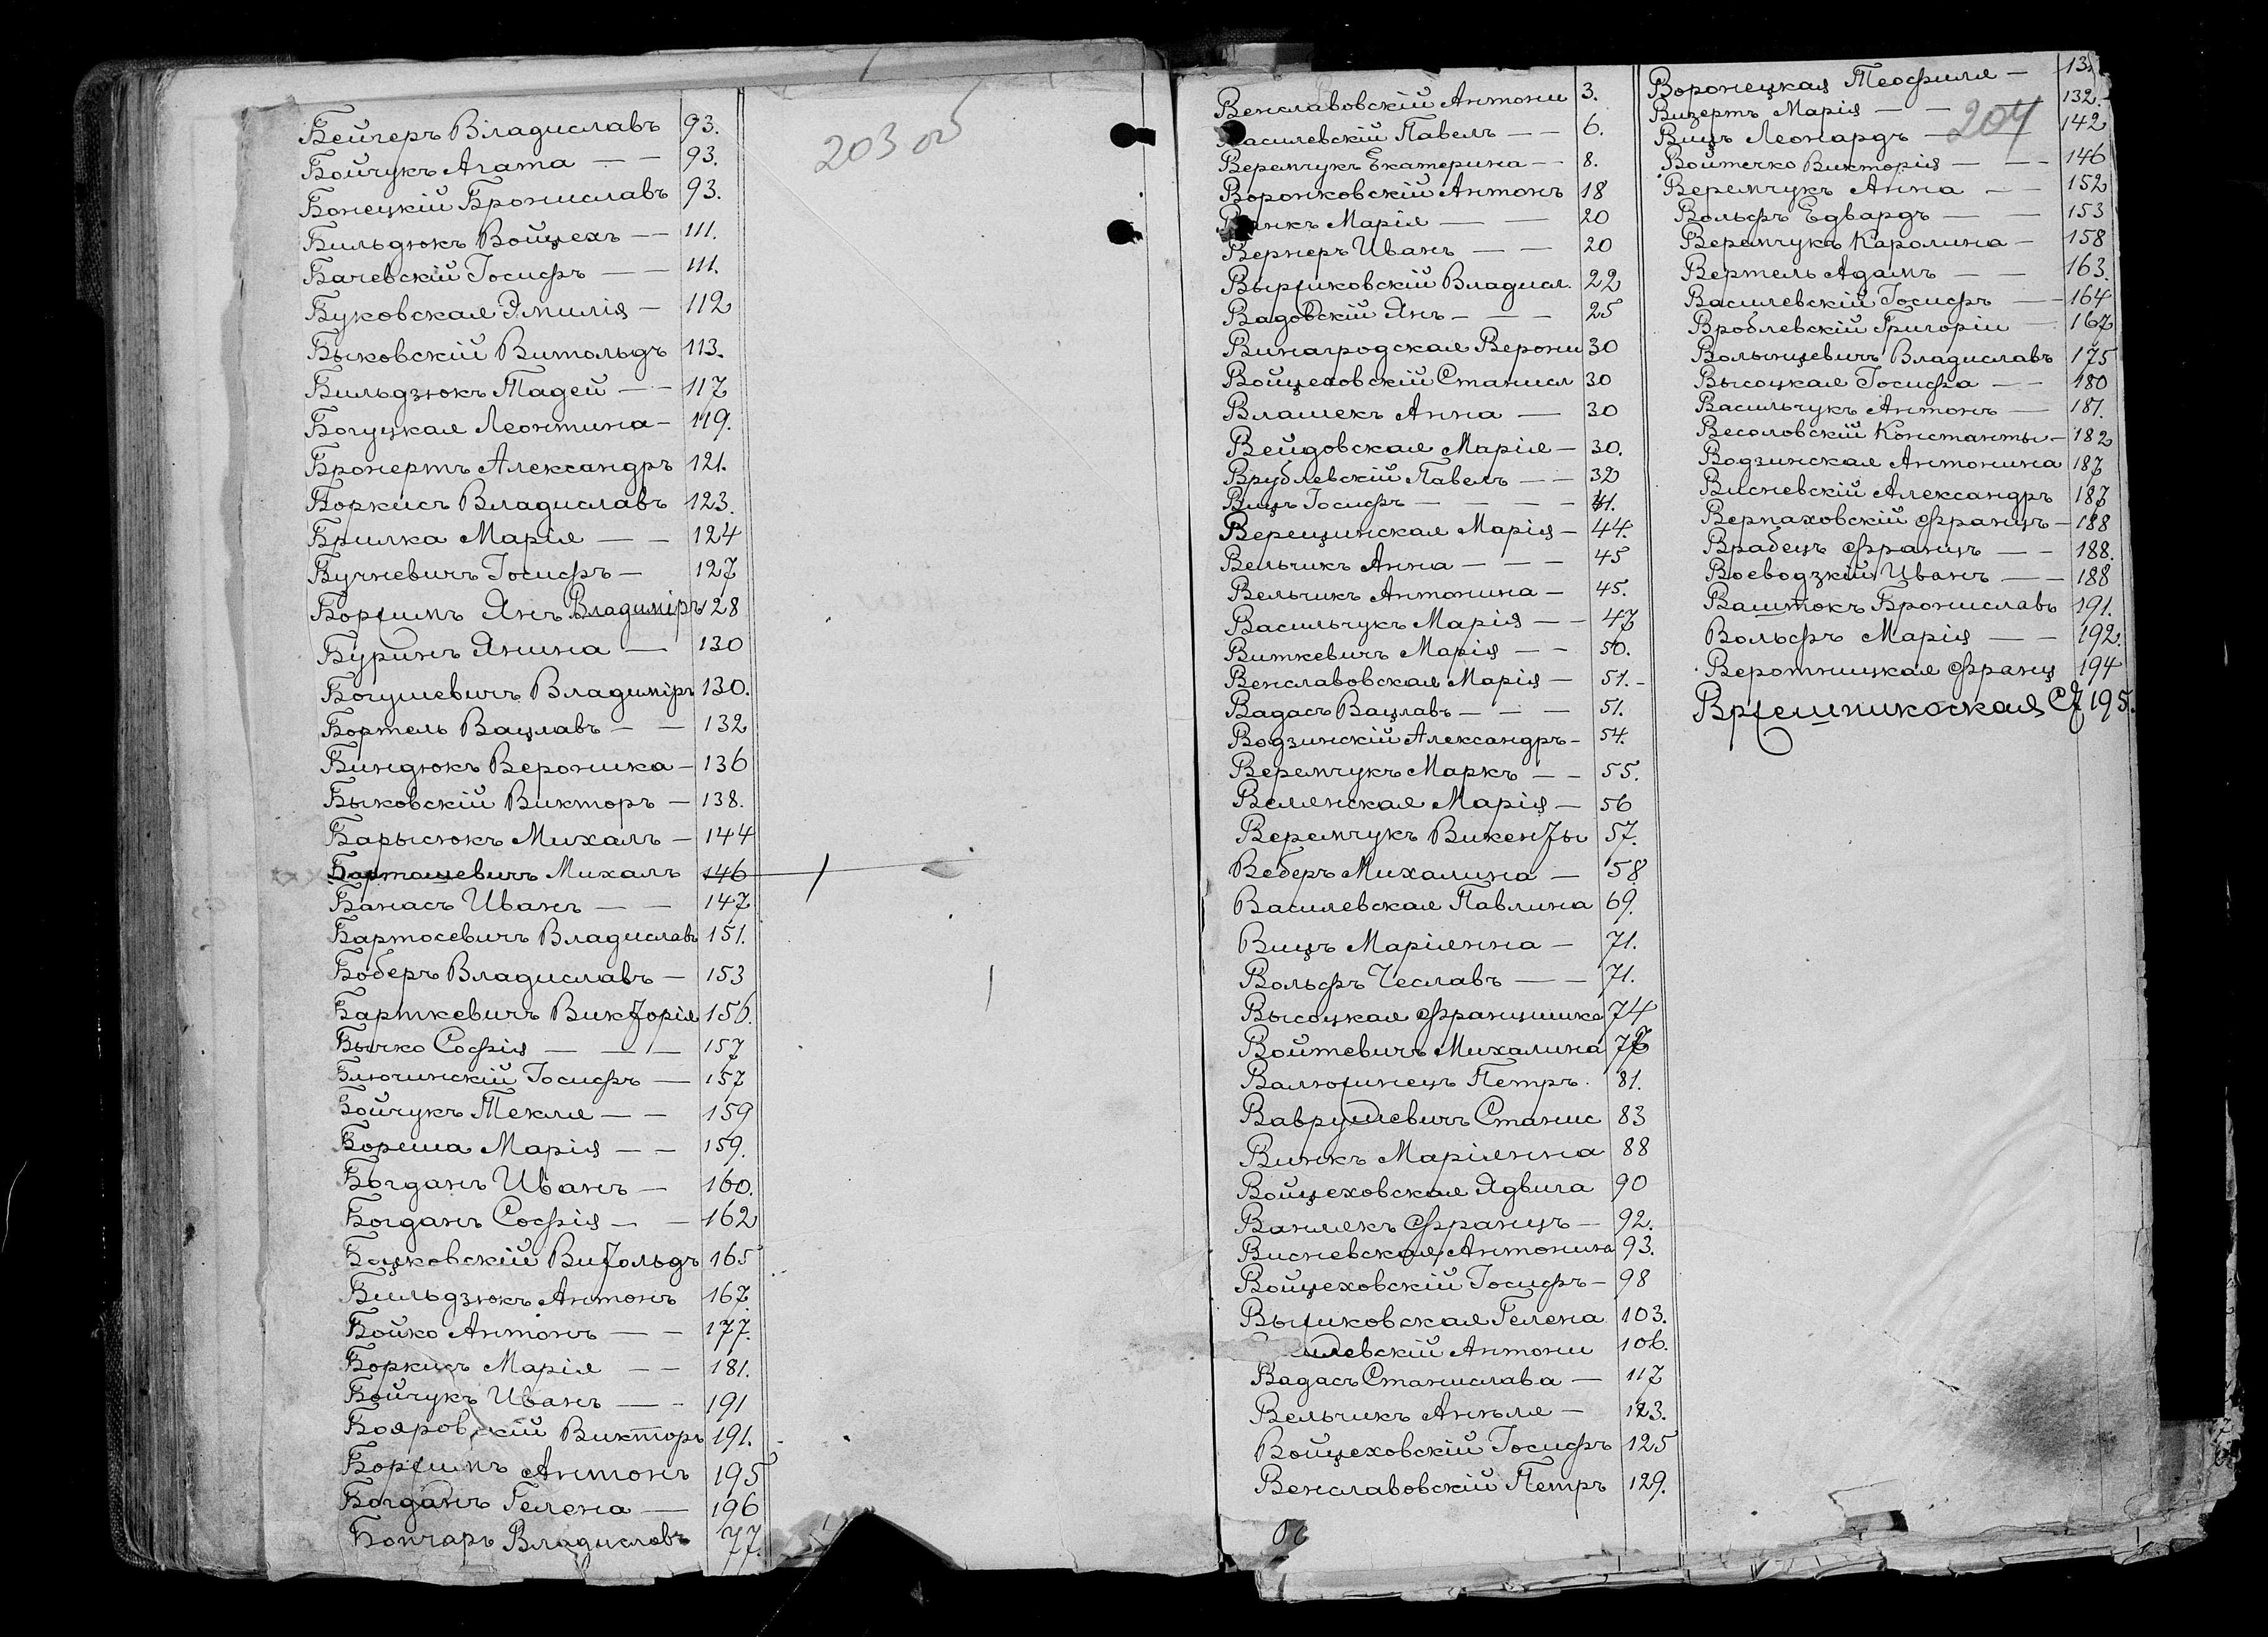 203 об
Бейгеръ Владиславъ 93.
Бойчукъ Агата — — 93.
Бонецкій Брониславъ 93.
Бильдюкъ Войцехъ — — 111.
Бачевскій Іосифъ — — 111.
Буковская Эмилія — 112
Быковскій Витольдъ 113.
Бильдзюкъ Тадей — — 117
Богуцкая Леонтина — 119.
Бронертъ Александръ 121.
Боркисъ Владиславъ 123.
Брилка Марія — — 124
Бучневичъ Іосифъ — 127
Боржимъ Янъ Владиміръ 128
Буринъ Янина — 130
Богушевичъ Владиміръ 130.
Бортель Вацлавъ — — 132
Биндюкъ Вероника — 136
Быковскій Викторъ — 138.
Барысюкъ Михалъ — 144
Барташевичъ Михалъ 146
Банасъ Иванъ — — 147
Бартосевичъ Владиславъ 151.
Боберъ Владиславъ — 153
Барткевичъ Викторія 156.
Бычко Софія — — — 157
Блючинскій Іосифъ — 157
Бойчукъ Текля — — 159
Бореша Марія — — 159.
Богданъ Иванъ — 160.
Богданъ Софія — — 162
Бецковскій Витольдъ 165
Бильдзюкъ Антонъ 167.
Бойко Антонъ — — 177.
Боркисъ Марія — — 181.
Бойчукъ Иванъ — — 191
Бояровскій Викторъ 191.
Боржимъ Антонъ 195
Богданъ Гелена — 196
Бончаръ Владиславъ 77.
Венславовскій Антони 3.
Василевскій Павелъ — — 6.
Веремчукъ Екатерина — — 8.
Воронковскій Антонъ 18
Винкъ Марія — — 20
Вернеръ Иванъ — — 20
Выржиковскій Владисл. 22
Вадовскій Янъ — — — 25
Винагродская Верони 30
Войцеховскій Станисл 30
Влашекъ Анна — 30
Вейдовская Марія — 30.
Врублевскій Павелъ — — 32
Вицъ Іосифъ — — — — 41.
Верещинская Марія — 44.
Вельчикъ Анна — — — 45
Вельчикъ Антонина — 45.
Васильчукъ Марія — — 47
Виткевичъ Марія — — 50.
Венславовская Марія — 51. -
Вадасъ Вацлавъ — — — 51.
Водзинскій Александръ — 54.
Веремчукъ Маркъ — — 55.
Велянская Марія — 56
Веремчукъ Викенты 57.
Веберъ Михалина — 58.
Василевская Павлина 69.
Вицъ Маріянна — 71.
Вольфъ Чеславъ — — 71.
Высоцкая Францишка 74
Войтевичъ Михалина 76
Валюжинецъ Петръ. 81.
Ваврушевичъ Станис 83
Винкъ Маріянна 88
Войцеховская Ядвига 90
Ванжекъ Францъ — 92.
Висневская Антонина 93.
Войцеховскій Іосифъ — 98
Выжиковская Гелена 103.
левскій Антони 106.
Вадасъ Станислава — 117
Вельчикъ Анъля — 123.
Войцеховскій Іосифъ 125
Венславовскій Петръ 129.
204
Воронецкая Теофиля — 13
Визертъ Марія — — 132.
Вицъ Леонардъ — 142
Войтечко Викторія — — — 146
Веремчукъ Анна — — 152
Вольфъ Едвардъ — — 153
Веремчукъ Каролина — 158
Вертель Адамъ — — 163.
Василевскій Іосифъ — — 164
Вроблевскій Григоріи — 167
Волынцевичъ Владиславъ 175
Высоцкая Іосифа — — 180
Васильчукъ Антонъ — 181.
Весоловскій Константы — 182
Водзинская Антонина 187
Висневскій Александръ 187
Верпаховскій Францъ — 188
Врабецъ Францъ — — 188.
Воеводзкій Иванъ — — 188
Ваштокъ Брониславъ 191.
Вольфъ Марія — — 192.
Веротницкая Франц 194
195.